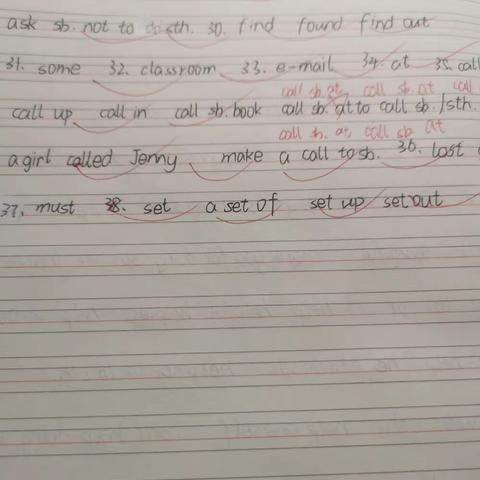 ask sb. not to do sth. 30. find found find out
31. some 32. classroom 33. e-mail 34. at 35. call
call sb. at call sb. at call
call up call in call sb. book call sb. at to call sb./sth.
call sb. at call sb. at
a girl called Jenny make a call to sb. 36. lost
37. must 38. set a set of set up set out